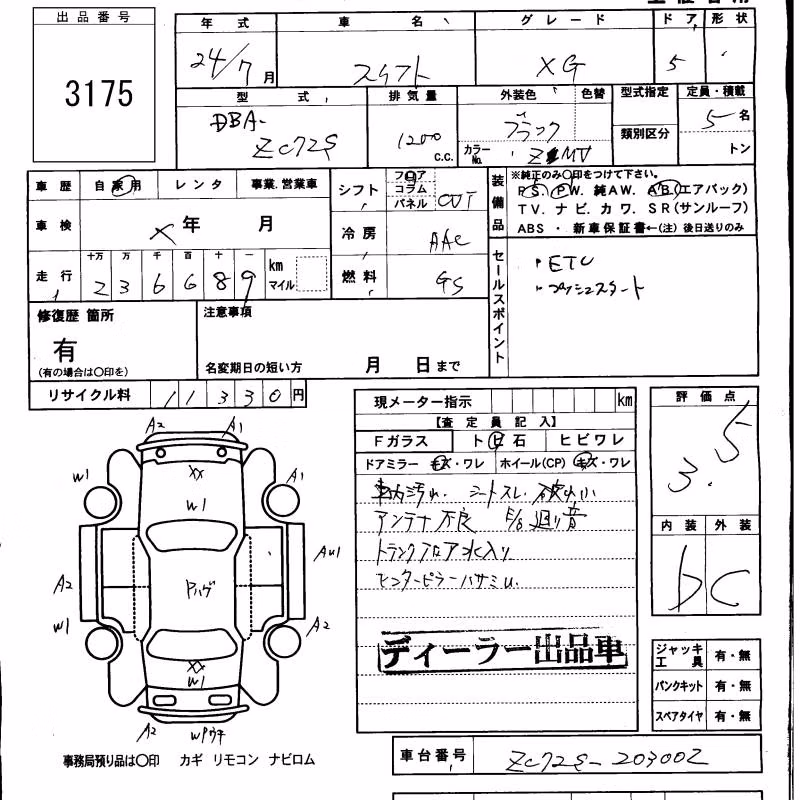 出品番号
3175
年式 車名 グレード ドア 形状
24/7月 スイフト XG 5
型式 排気量 外装色 色替 型式指定 定員・積載
DBA-ZC72S 1200 C.C. ブラック 5名
カラーNo. ZMV 類別区分 トン
車歴 自家用 レンタ 事業.営業車
シフト フロア コラム パネル CVT
車検 X年 月
冷房 AAC
走行 十万 万 千 百 十 一
236689 km マイル
燃料 GS
装備品
※純正のみ○印をつけて下さい。
P.S. P.W. 純AW. A/B(エアバック)
T.V. ナビ. カワ. S.R(サンルーフ)
ABS ・ 新車保証書←(注)後日送りのみ
セールスポイント
・ETC
・プッシュスタート
修復歴 箇所
有
(有の場合は○印を)
注意事項
名変期日の短い方 月 日まで
リサイクル料 11330円
現メーター指示 km
【査定員記入】
Fガラス ト日石 ヒビワレ
ドアミラー キズ・ワレ ホイール(CP) キズ・ワレ
車内汚れ シートスレ.破れ小
アンテナ不良 E/G 廻り音
トランクフロア水入り
センターピラーハサミ
ディーラー出品車
評価点
3.5
内装 外装
b C
ジャッキ工具 有・無
パンクキット 有・無
スペアタイヤ 有・無
A2 A1
XX
W1 W1 A1
Pハゲ
A2 AU1
W1 A2
XX
W1
A2
事務局預り品は○印 カギ リモコン ナビロム
車台番号 ZC72S-203002